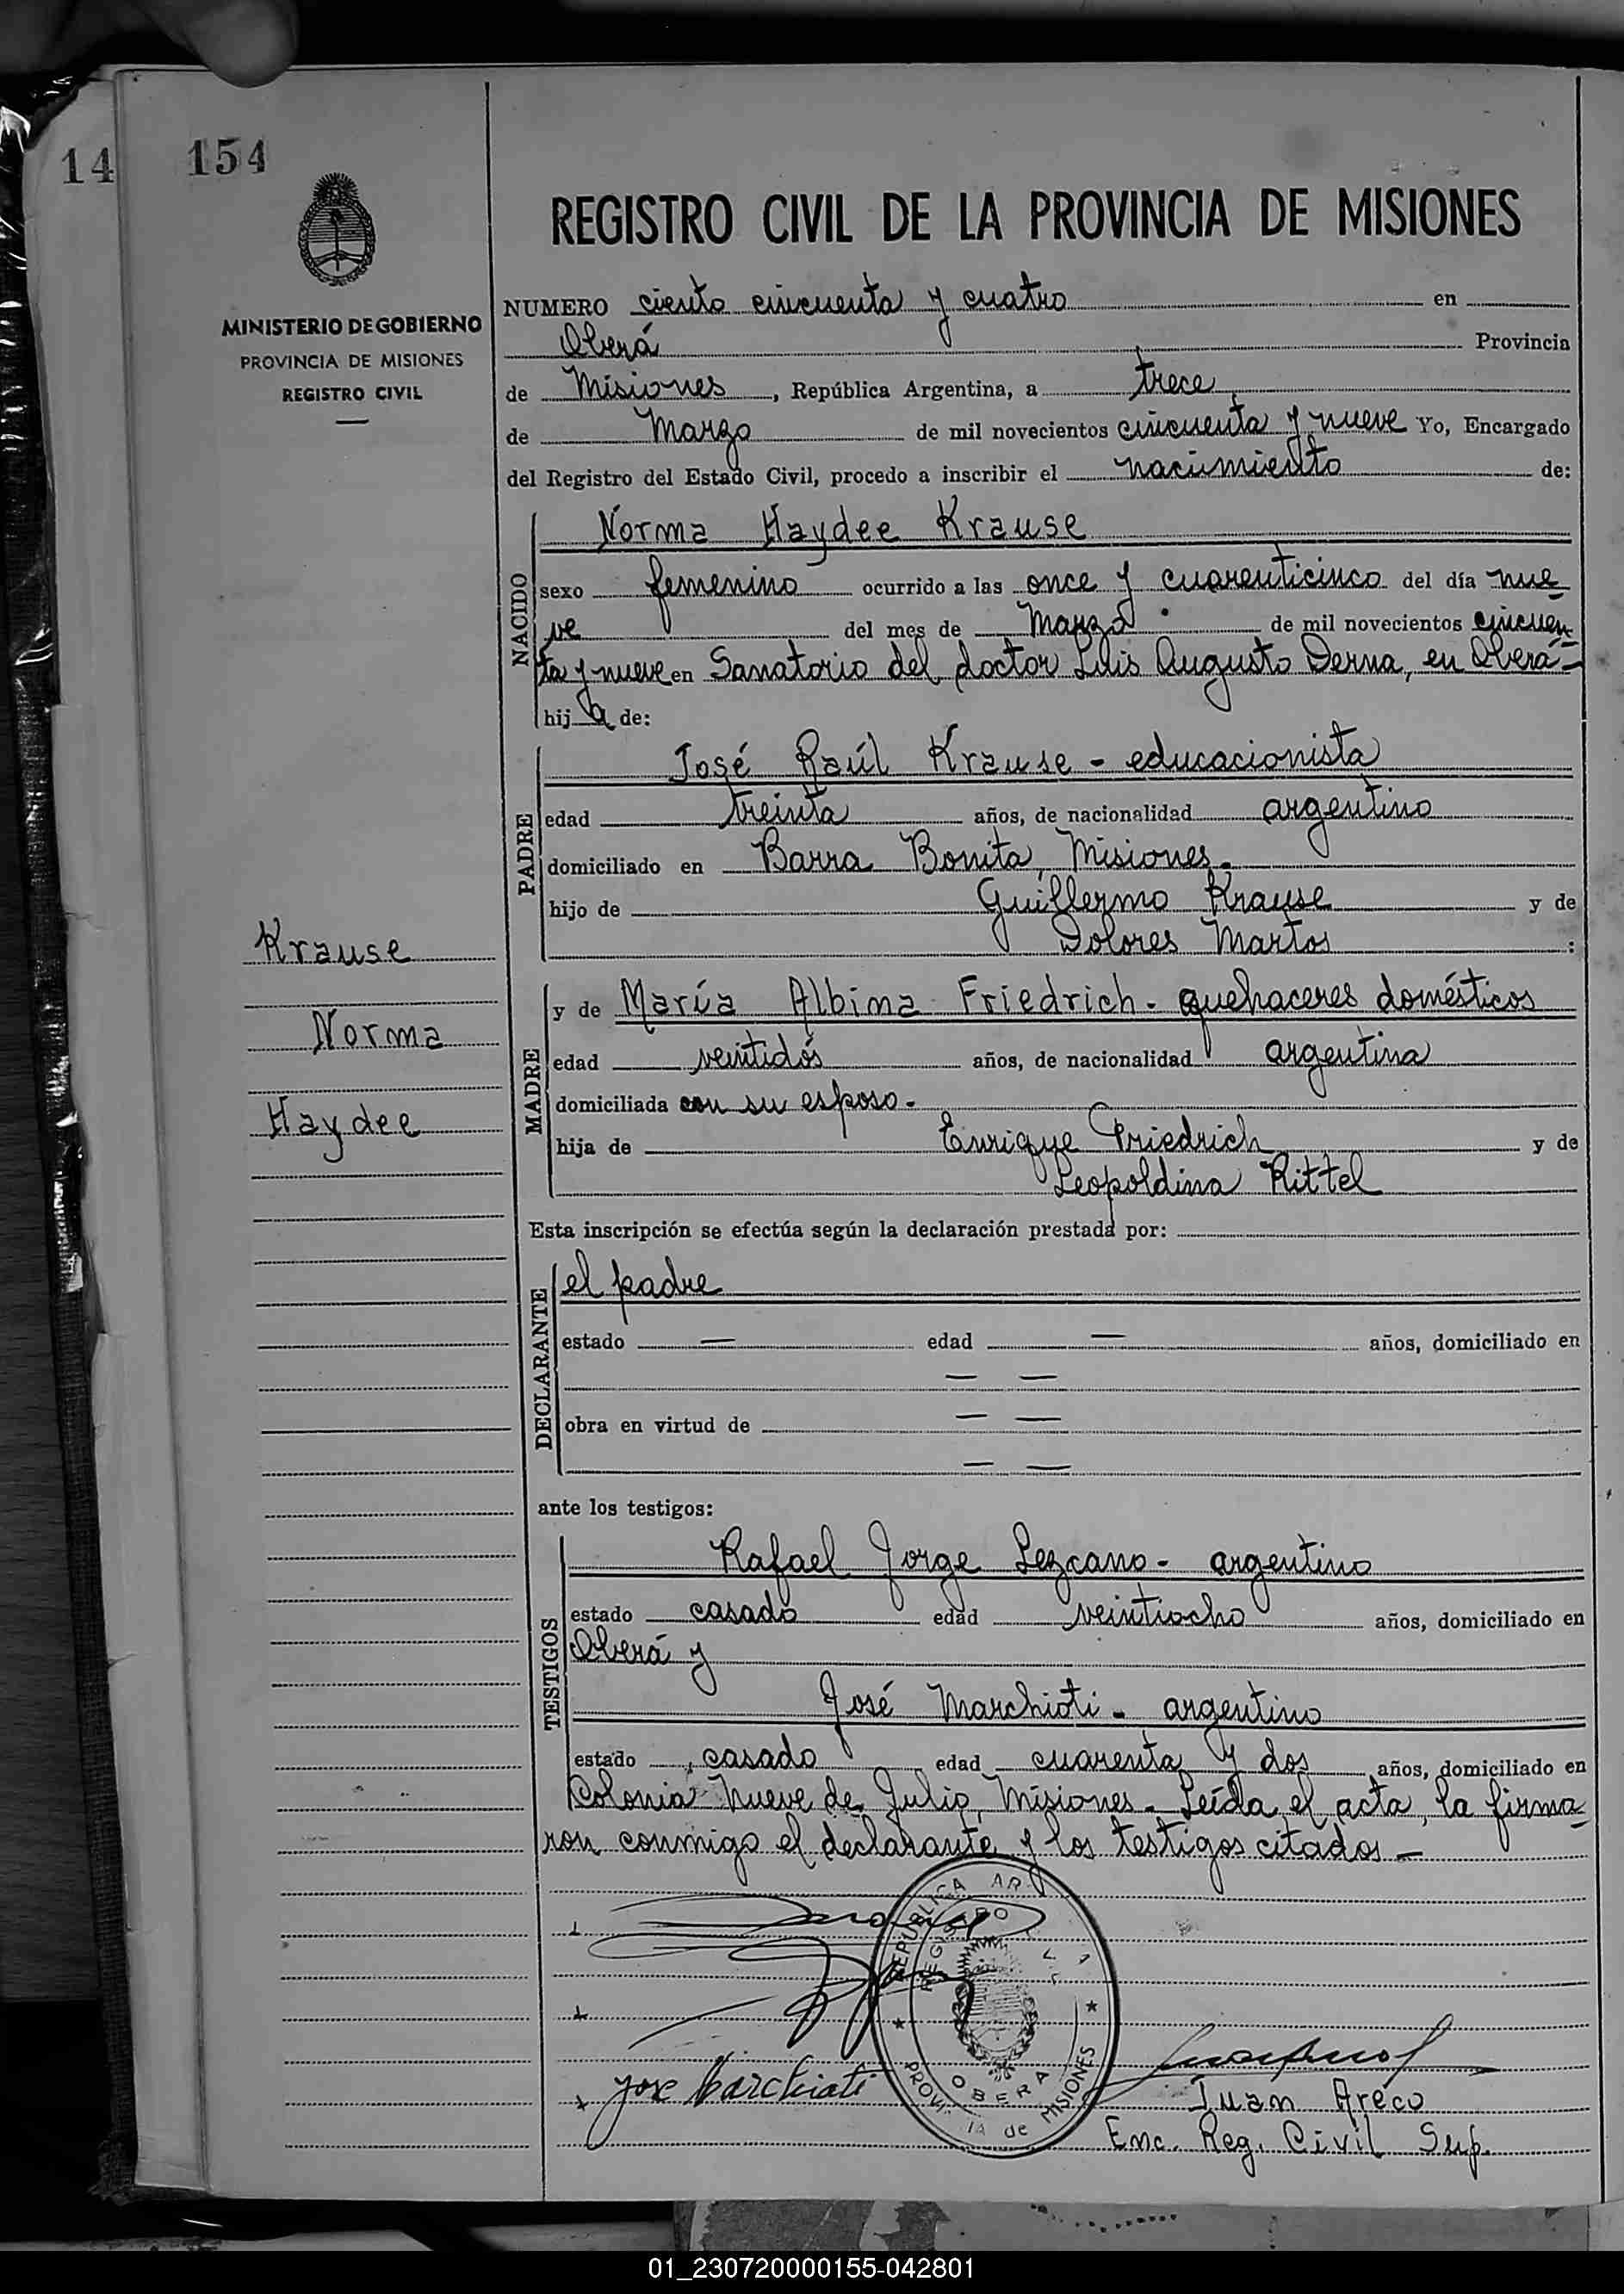 14
154
MINISTERIO DE GOBIERNO
PROVINCIA DE MISIONES
REGISTRO CIVIL
REGISTRO CIVIL DE LA PROVINCIA DE MISIONES
NUMERO ciento cincuenta y cuatro en
Oberá Provincia
de Misiones, República Argentina, a trece
de Marzo de mil novecientos cincuenta y nueve Yo, Encargado
del Registro del Estado Civil, procedo a inscribir el nacimiento de:
NACIDO
Norma Haydee Krause
sexo femenino ocurrido a las once y cuarenticinco del día nue-
ve del mes de Marzo de mil novecientos cincuen-
ta y nueve en Sanatorio del doctor Luis Augusto Derna, en Oberá-
hija de:
PADRE
José Raúl Krause - educacionista
edad treinta años, de nacionalidad argentino
domiciliado en Barra Bonita, Misiones.
hijo de Guillermo Krause y de
Dolores Martos :
Krause
Norma
Haydee
MADRE
y de María Albina Friedrich - quehaceres domésticos
edad veintidós años, de nacionalidad argentina
domiciliada con su esposo.
hija de Enrique Friedrich y de
Leopoldina Rittel
Esta inscripción se efectúa según la declaración prestada por:
DECLARANTE
el padre
estado — edad — años, domiciliado en
— —
obra en virtud de — —
— —
ante los testigos:
TESTIGOS
Rafael Jorge Lezcano - argentino
estado casado edad veintiocho años, domiciliado en
Oberá y
José Marchioti - argentino
estado casado edad cuarenta y dos años, domiciliado en
Colonia Nueve de Julio, Misiones. Leída el acta, la firma-
ron conmigo el declarante y los testigos citados -
REPUBLICA AR A
REGISTRO CIVIL
OBERA
PROVI IA de MISIONES
Jose Marchiati
Juan Areco
Enc. Reg. Civil Sup.
01_230720000155-042801